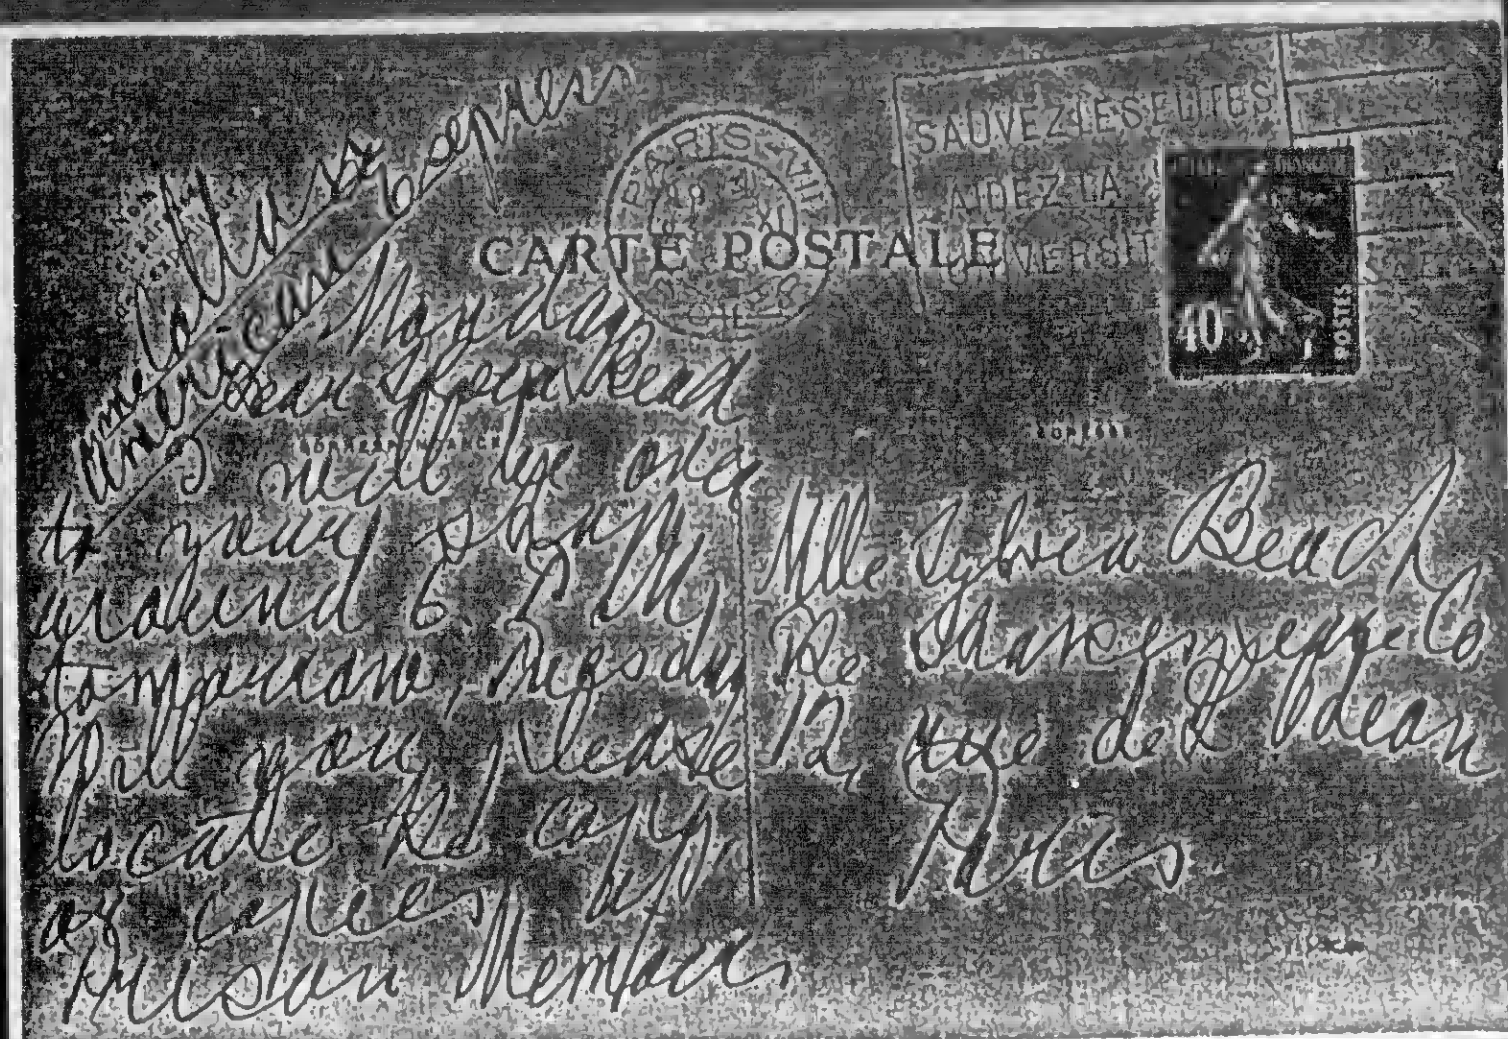 American Express
PARIS
SAUVEZ LES ELITES
AIDEZ LA
UNIVERSIT
CARTE POSTALE
40c
POSTES
Monday
Dear Sylvia Beach
I will be over
to your shop
around 6. P. M,
tomorrow, Tuesday
Will you please
locate the copy
or copies of
Prison Memoirs
Mlle Sylvia Beach
Shakespeare Co
12, rue de L'Odeon
Paris